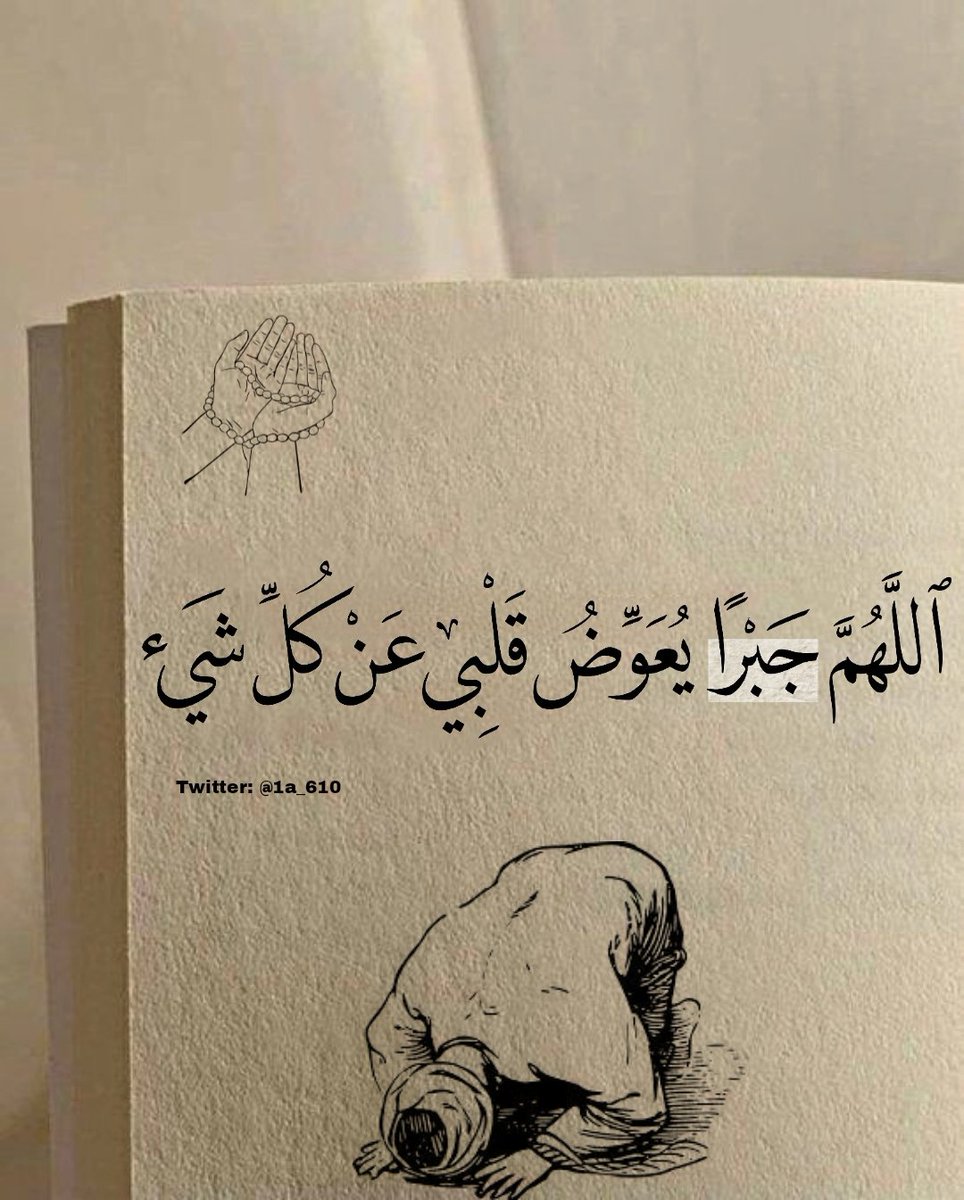 ٱللَّهُمَّ جَبْرًا يُعَوِّضُ قَلْبِيْ عَنْ كُلِّ شَيَء
Twitter: @1a_610